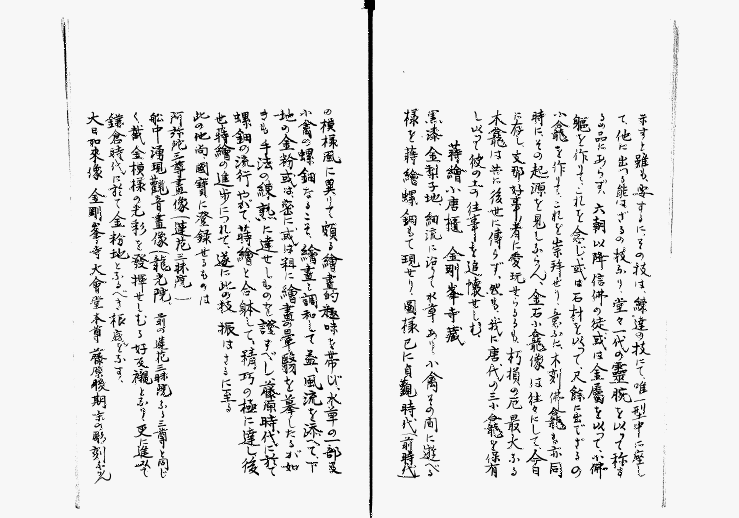 示すと雖も、要するに、その技は、縁達の技にて唯一型中に座し
て、他に出づる能はざるの技なり、堂々一代の靈腕を以て称す
るの品にあらず、六朝以降信佛の徒或は金屬を以って小佛
軀を作り、これを念じ或は石材を以って尺餘に出でざるの
小龕を作て、これを崇拜せり、木刻佛龕も亦同
時にその起源を見しならん、金石小龕像は往々にして、今日
に存し支那好事者に愛玩せらるるも、朽損の厄最大なる
木龕は共に後世に得らず、然も、我に唐代の三小龕を保有
し以て彼の土の往事を追懐せしむ、
蒔繪小唐櫃 金剛峯寺藏
黑漆金梨子地、細流に沿て水草あり、小禽その間に遊べる
樣を蒔繪螺鈿もて現せり、圖樣已に貞觀時代(前時代)
の模樣風に異りて頗る繪畫的趣味を帶び、水草の一部及
小禽の螺鈿なるこそ、繪畫と調和して益、風流を添へて、下
地の金粉或は密に或は粗に繪畫の暈翳を摹したるが如
きも手法の練熟に達せしものを證すべし藤原時代に於て
螺鈿の流行やがて、蒔繪と合体して、精巧の極に達し後
世蒔繪の進步につれて、遂に此の技 振はざるに至る
此の他尚國寶に登録せるものは
阿弥陀三尊畫像(蓮花三昧院)
船中湧現觀音畫像(龍光院、 前の蓮花三昧院なる三尊と同じ
く截金模樣の光彩を發揮せしむる好及襯となり、更に進みて
鎌倉時代に於て金粉地となるべき根底をなす、
大日如來像 金剛峯寺大會堂本尊 藤原後期京の彫刻